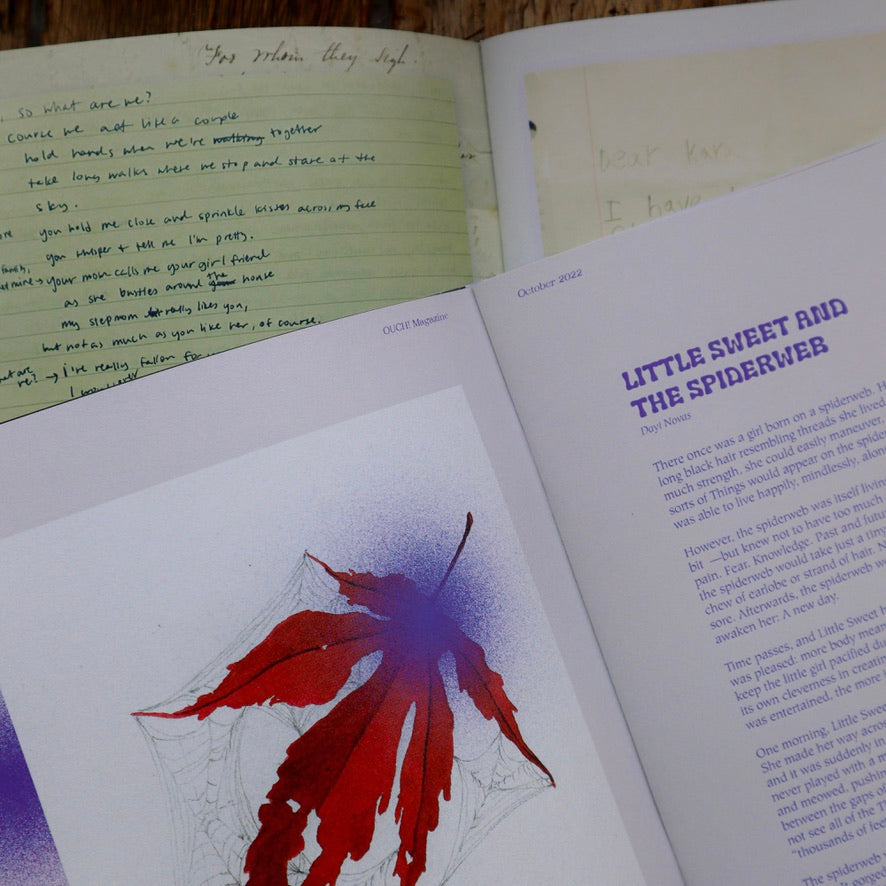 For whom they sigh.
, so what are we?
course we act like a couple
hold hands when we're walking together
take long walks where we stop and stare at the
sky.
you hold me close and sprinkle kisses across my face
you whisper + tell me I'm pretty.
your mom calls me your girlfriend
as she bustles around the house
my stepmom really likes you,
but not as much as you like her, of course.
I've really fallen for
Dear Kar
I have
OUCH! Magazine
October 2022
LITTLE SWEET AND
THE SPIDERWEB
Dayi Novas
There once was a girl born on a spiderweb. H
long black hair resembling threads she lived
much strength, she could easily maneuver.
sorts of Things would appear on the spider
was able to live happily, mindlessly, alon
However, the spiderweb was itself living
bit —but knew not to have too much
pain. Fear. Knowledge. Past and futu
the spiderweb would take just a tiny
chew of cariobe or strand of hair. N
sore. Afterwards, the spiderweb w
awaken her: A new day.
Time passes, and Little Sweet h
was pleased: more body mean
keep the little girl pacified du
its own cleverness in creatin
was entertained, the more
One morning, Little Swee
She made her way acros
and it was suddenly in
never played with a m
and meowed, pushin
between the gaps of
not see all of the T
"thousands of fee
The spiderweb
gorgeo